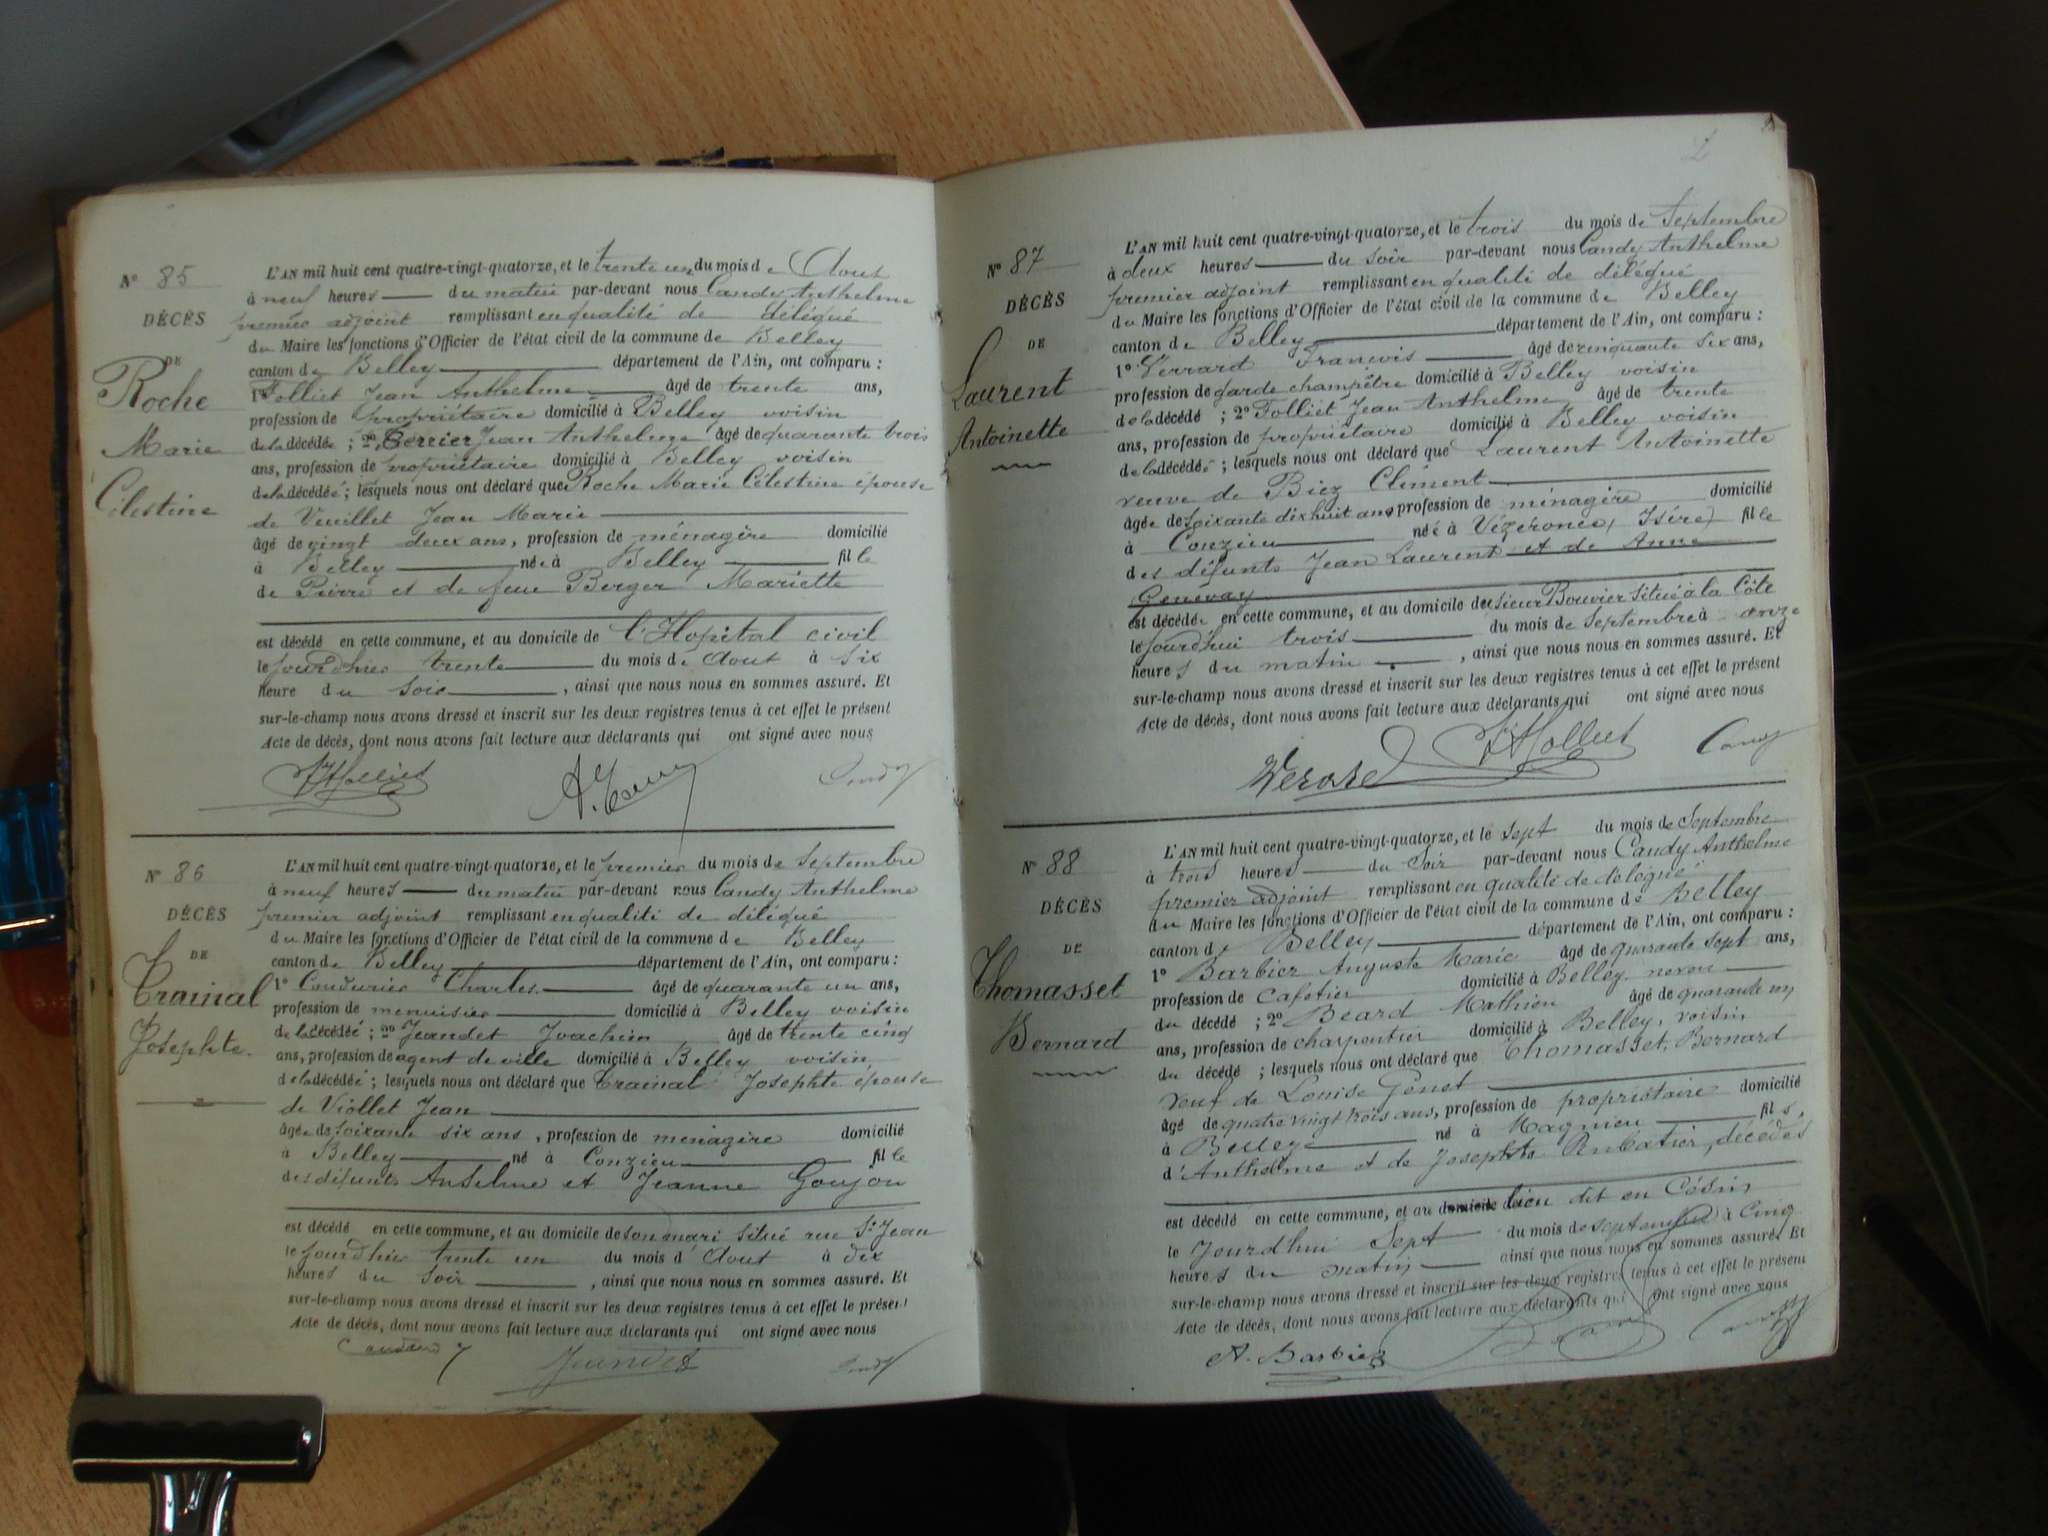 N° 85
DÉCÈS
DE
Roche
Marie
Célestine
L'AN mil huit cent quatre-vingt-quatorze, et le trente un du mois de Aout
à neuf heures du matin par-devant nous Candy Anthelme
premier adjoint remplissant en qualité de délégué
du Maire les fonctions d'Officier de l'état civil de la commune de Belley
canton de Belley département de l'Ain, ont comparu :
1° Folliet Jean Anthelme âgé de trente ans,
profession de propriétaire domicilié à Belley voisin
de la décédée ; 2° Jean Anthelme âgé de quarante trois
ans, profession de propriétaire domicilié à Belley voisin
de la décédée ; lesquels nous ont déclaré que Roche Marie Célestine épouse
de Veuillet Jean Marie
âgé de vingt deux ans, profession de ménagère domicilié
à Belley née à Belley fille
de Pierre et de feue Berger Mariette
est décédé en cette commune, et au domicile de l'Hopital civil
le jourdhier trente du mois de Aout à six
heure du soir, ainsi que nous nous en sommes assuré. Et
sur-le-champ nous avons dressé et inscrit sur les deux registres tenus à cet effet le présent
Acte de décès, dont nous avons fait lecture aux déclarants qui ont signé avec nous
JAFolliet Candy
N° 86
DÉCÈS
DE
Crainal
Josephte
L'AN mil huit cent quatre-vingt-quatorze, et le premier du mois de Septembre
à neuf heures du matin par-devant nous Candy Anthelme
premier adjoint remplissant en qualité de délégué
du Maire les fonctions d'Officier de l'état civil de la commune de Belley
canton de Belley département de l'Ain, ont comparu :
1° Couturier Charles âgé de quarante un ans,
profession de menuisier domicilié à Belley voisin
de la décédée ; 2° Jeandet Joachim âgé de trente cinq
ans, profession de agent de ville domicilié à Belley voisin
de la décédée ; lesquels nous ont déclaré que Crainal Josephte épouse
de Viollet Jean
âgée de soixante six ans, profession de ménagère domicilié
à Belley né à Conzieu fille
des défunts Anselme et Jeanne Goujon
est décédé en cette commune, et au domicile de son mari situé rue St Jean
le jourdhier trente un du mois d' Aout à dix
heures du soir, ainsi que nous nous en sommes assuré. Et
sur-le-champ nous avons dressé et inscrit sur les deux registres tenus à cet effet le présent
Acte de décès, dont nous avons fait lecture aux déclarants qui ont signé avec nous
Jeandet Candy
N° 87
DÉCÈS
DE
Laurent
Antoinette
L'AN mil huit cent quatre-vingt-quatorze, et le trois du mois de Septembre
à deux heures du soir par-devant nous Candy Anthelme
premier adjoint remplissant en qualité de délégué
du Maire les fonctions d'Officier de l'état civil de la commune de Belley
canton de Belley département de l'Ain, ont comparu :
1° François âgé de cinquante six ans,
profession de garde champêtre domicilié à Belley voisin
de la décédé ; 2° Folliet Jean Anthelme âgé de trente
ans, profession de propriétaire domicilié à Belley voisin
de la décédée ; lesquels nous ont déclaré que Laurent Antoinette
veuve de Biez Clément
âgée de soixante dix huit ans, profession de ménagère domicilié
à Conzieu née à Vézeronce, Isère, fille
des défunts Jean Laurent et de Anne
Genevay
est décédée en cette commune, et au domicile du sieur Bouvier situé à la Côte
le jourdhui trois du mois de septembre à onze
heures du matin, ainsi que nous nous en sommes assuré. Et
sur-le-champ nous avons dressé et inscrit sur les deux registres tenus à cet effet le présent
Acte de décès, dont nous avons fait lecture aux déclarants qui ont signé avec nous
JAFolliet Candy
N° 88
DÉCÈS
DE
Thomasset
Bernard
L'AN mil huit cent quatre-vingt-quatorze, et le sept du mois de Septembre
à trois heures du soir par-devant nous Candy Anthelme
premier adjoint remplissant en qualité de délégué
du Maire les fonctions d'Officier de l'état civil de la commune de Belley
canton de Belley département de l'Ain, ont comparu :
1° Barbier Auguste Marie âgé de quarante sept ans,
profession de Cafetier domicilié à Belley neveu
du décédé ; 2° Béard Mathieu âgé de quarante un
ans, profession de charpentier domicilié à Belley, voisin
du décédé ; lesquels nous ont déclaré que Thomasset, Bernard
veuf de Louise Genet
âgé de quatre vingt trois ans, profession de propriétaire domicilié
à Belley né à Magnieu fils,
d'Anthelme et de Josephte décédés
est décédé en cette commune, et au domicile lieu dit en
le Jourdhui Sept du mois de septembre à Cinq
heures du matin ainsi que nous nous en sommes assuré. Et
sur-le-champ nous avons dressé et inscrit sur les deux registres tenus à cet effet le présent
Acte de décès, dont nous avons fait lecture aux déclarants qui ont signé avec nous
A. Barbier